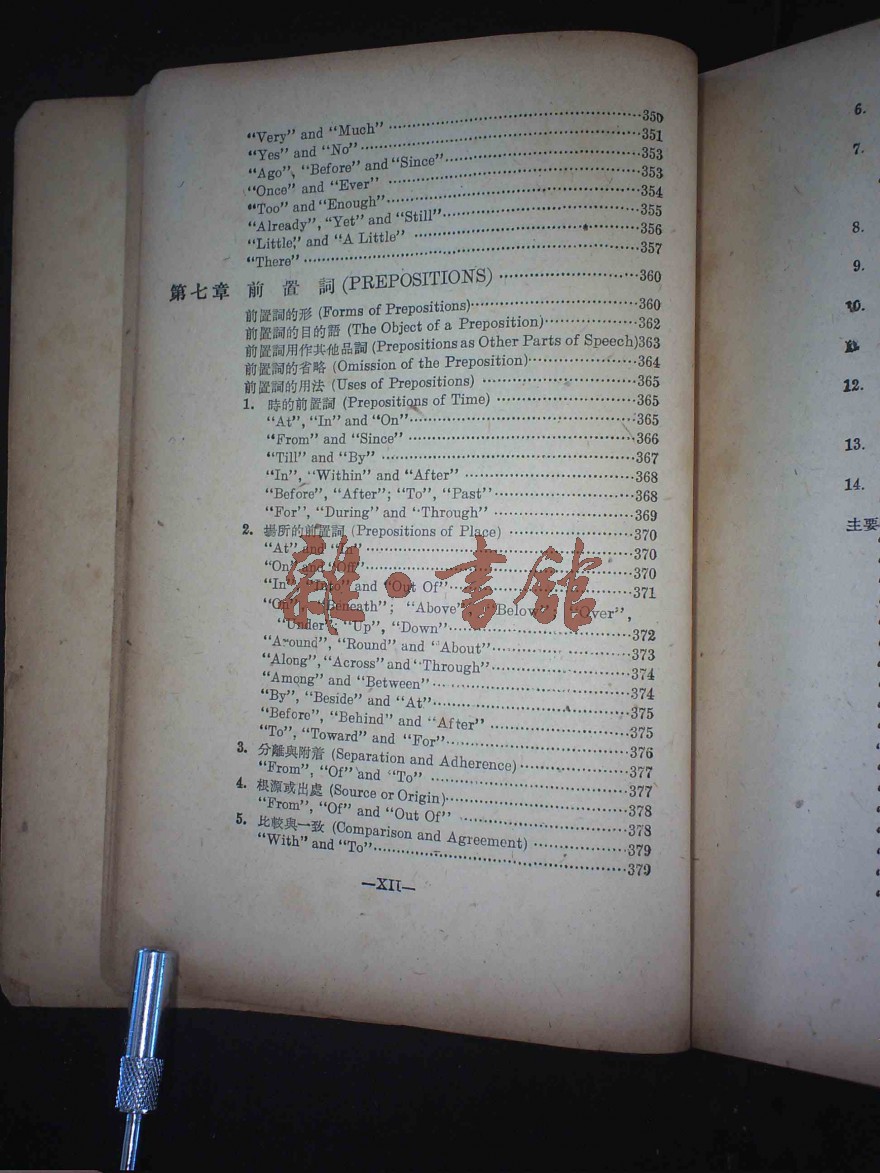 "Very" and "Much" ……350
"Yes" and "No" ……351
"Ago", "Before" and "Since" ……353
"Once" and "Ever" ……353
"Too" and "Enough" ……354
"Already", "Yet" and "Still" ……355
"Little," and "A Little" ……356
"There" ……357
第七章 前置詞 (PREPOSITIONS) ……360
前置詞的形 (Forms of Prepositions) ……360
前置詞的目的語 (The Object of a Preposition) ……362
前置詞用作其他品詞 (Prepositions as Other Parts of Speech)363
前置詞的省略 (Omission of the Preposition) ……364
前置詞的用法 (Uses of Prepositions) ……365
1. 時的前置詞 (Prepositions of Time) ……365
"At", "In" and "On" ……365
"From" and "Since" ……366
"Till" and "By" ……367
"In", "Within" and "After" ……368
"Before", "After"; "To", "Past" ……368
"For", "During" and "Through" ……369
2. 場所的前置詞 (Prepositions of Place) ……370
"At" and "In" ……370
"On" and "Off" ……370
"In", "Into" and "Out Of" ……371
"On", "Beneath"; "Above", "Below"; "Over",
"Under"; "Up", "Down" ……372
"Around", "Round" and "About" ……373
"Along", "Across" and "Through" ……374
"Among" and "Between" ……374
"By", "Beside" and "At" ……375
"Before", "Behind" and "After" ……375
"To", "Toward" and "For" ……376
3. 分離與附着 (Separation and Adherence) ……377
"From", "Of" and "To" ……377
4. 根源或出處 (Source or Origin) ……378
"From", "Of" and "Out Of" ……378
5. 比較與一致 (Comparison and Agreement) ……379
"With" and "To" ……379
—XII—
雜·書館
6.
7.
8.
9.
10.
12.
13.
14.
主要